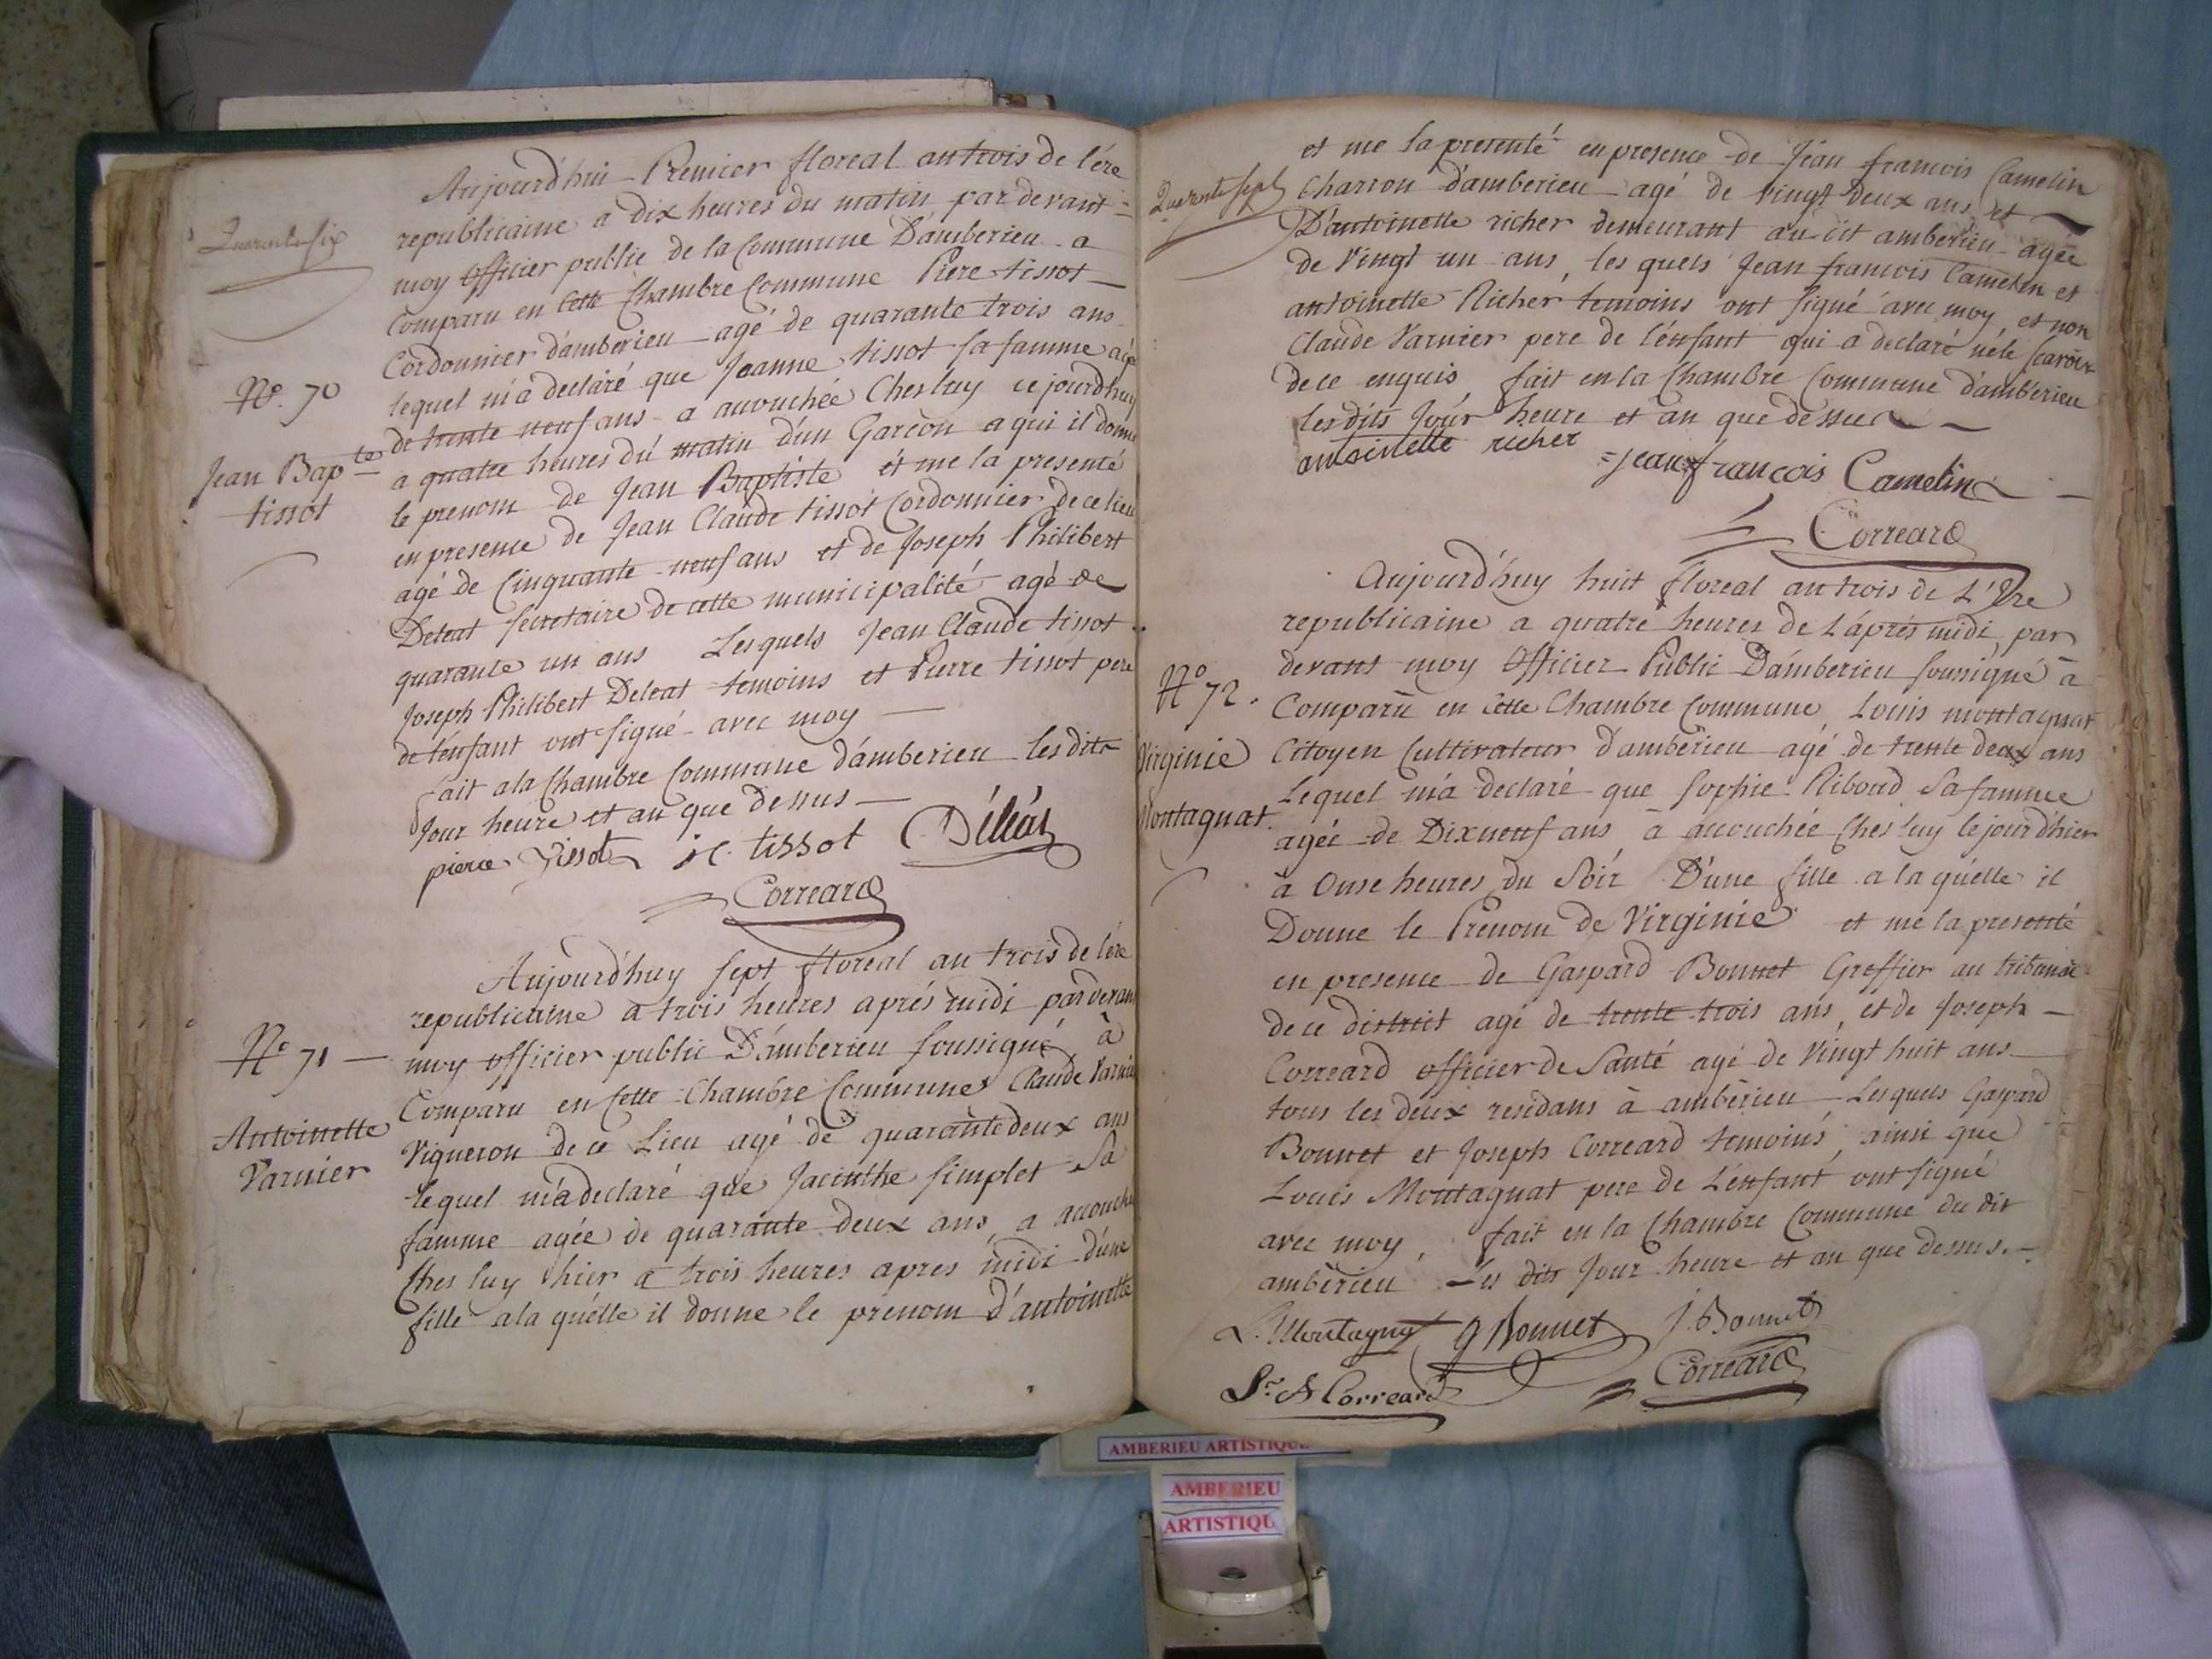 Quarante six
Aujourd'hui Premier floreal an trois de l'ére
republicaine a dix heures du matin par devant
moy Officier public de la Commune D'amberieu a
Comparu en Cette Chambre Commune Piere tissot
Cordonnier d'amberieu agé de quarante trois ans
lequel m'a declaré que Jeanne tissot sa famme agée
de trente neuf ans a accouchée Chesluy ce jourdhuy
a quatre heures du matin d'un Garcon a qui il donne
le prenom de Jean Baptiste et me la presenté
en presence de Jean Claude tissot Cordonnier de ce lieu
agé de Cinquante neuf ans et de Joseph Philibert
Deleat secretaire de cette municipalité agé de
quarante un ans Lesquels Jean Claude tissot
Joseph Philibert Deleat temoins et Pierre tissot pere
de l'enfant ont signé avec moy
fait a la Chambre Commune d'amberieu les dits
Jour heure et an que dessus
pierre Tissot j c tissot Déléat
Correard
No. 70
Jean Bap.te
tissot
Aujourd'huy sept floreal an trois de l'ére
republicaine a trois heures aprés midi pardevant
moy officier public D'amberieu soussigné à
Comparu en Cette Chambre Commune Claude Varnier
Vigneron de ce Lieu agé de quarante deux ans
lequel m'a declaré que Jacinthe simplet Sa
famme agée de quarante deux ans, a accouchée
Ches luy hier a trois heures apres midi d'une
fille a la quélle il donne le prenom d'antoinette
No 71
Antoinette
Varnier
Quarante sept
et me la presenté en presence de Jéan francois Camelin
Charron d'amberieu agé de vingt deux ans, et
D'antoinette richer demeurant au dit amberieu agée
de Vingt un ans, les quels Jean francois Camelin et
antoinette Richer temoins ont signé avec moy, et non
Claude Varnier pere de l'énfant qui a declaré ne le scavoir
de ce enquis fait en la Chambre Commune d'amberieu
les dits Jour heure et an que dessus
antoinette richer
jean francois Camelin
Correard
Aujourd'huy huit floreal an trois de L'Ere
republicaine a quatre heures de L'aprés midi, par
devant moy Officier Public D'amberieu soussigné à
Comparu en Cette Chambre Commune, Louis montagnat
Citoyen Cultivateur d'amberieu agé de trente deux ans
Lequel m'a declaré que Sophie Riboud Sa famme
agée de Dixneuf ans, a accouchée Ches luy le jour d'hier
à Onse heures du Soir D'une fille a la quélle il
Donne le Prenom de Virginie et me la presenté
en presence de Gaspard Bonnet Greffier au tribunal
de ce district agé de trente trois ans, et de Joseph
Correard officier de Santé agé de Vingt huit ans
tous les deux residans à amberieu Lesquels Gaspard
Bonnet et Joseph Correard temoins, ainsi que
Louis Montagnat pere de L'énfant ont signé
avec moy, fait en la Chambre Commune du dit
amberieu Les dits Jour heure et an que dessus.
L. Montagnat g Bonnet J. Bonnet
Correard
No 72.
Virginie
Montagnat.
AMBERIEU ARTISTIQUE
AMBERIEU
ARTISTIQU